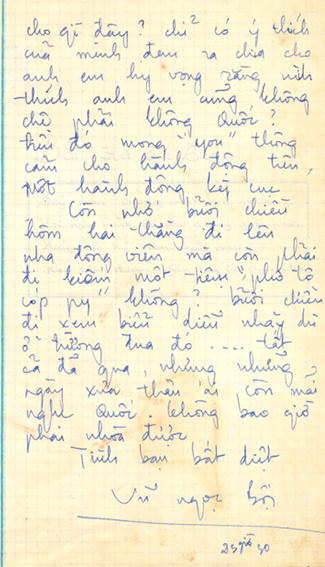 cho gì đây? chỉ có ý thích
của mình đem ra chia cho
anh em hy vọng rằng mình
thích anh em cũng không
chê phải không Quốc?
đó mong "you" thông
cảm cho hành động trên,
một hành động kỳ cục
Còn nhớ buổi chiều
hôm hai thằng đi lên
nha động viên mà còn phải
đi kiếm một tiệm "phô tô
cóp py" không? buổi chiều
đi xem biểu diễn nhảy dù
ở trường đua đó .... tất
cả đã qua, nhưng những
ngày xưa thân ái còn mãi
nghe Quốc. không bao giờ
phai nhoà được
Tình bạn bất diệt
Vũ ngọc